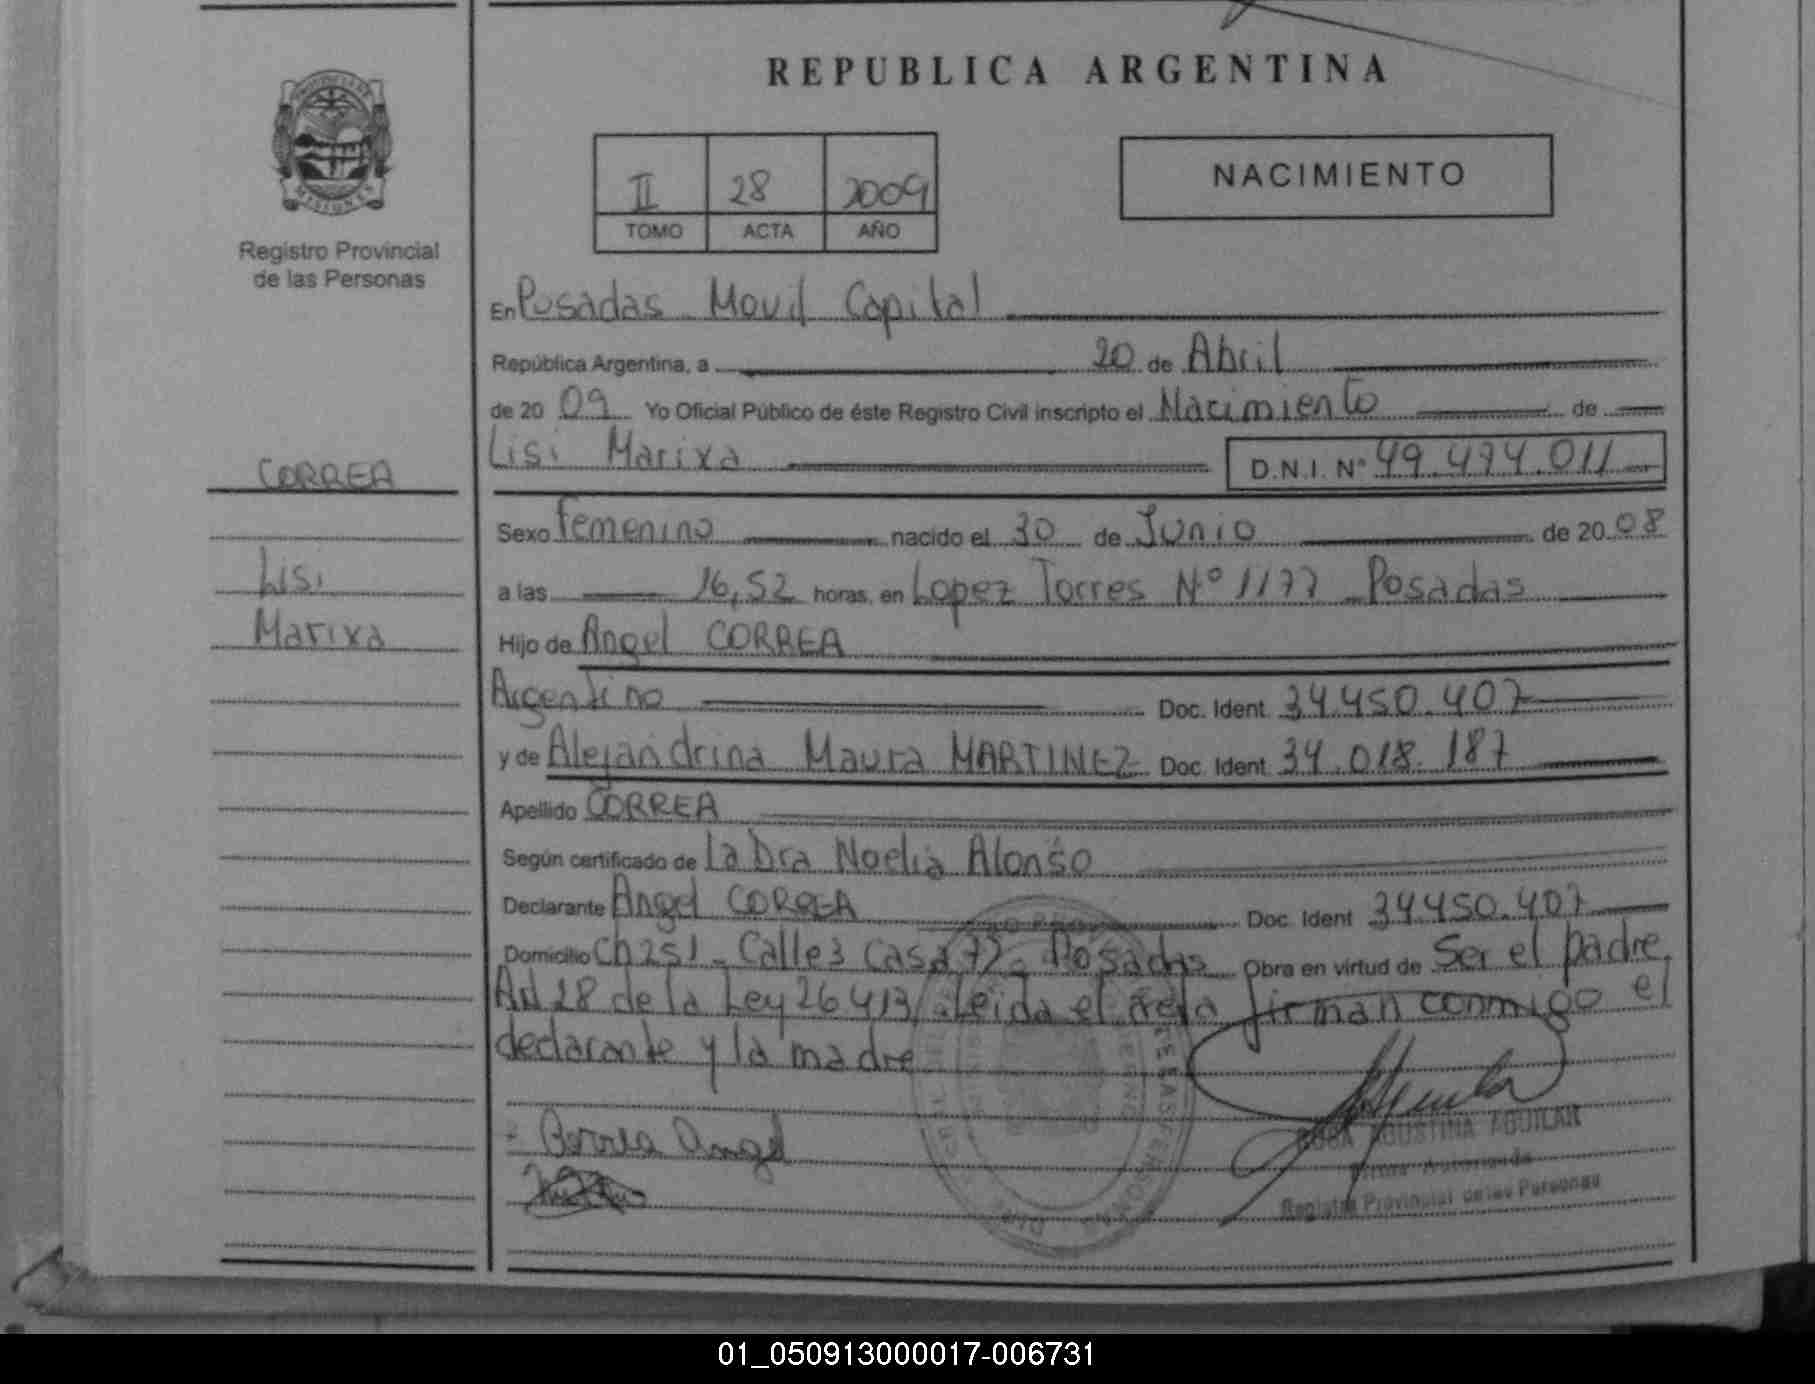 REPUBLICA ARGENTINA
II 28 2009
TOMO ACTA AÑO
NACIMIENTO
Registro Provincial
de las Personas
CORREA
Lisi
Marixa
En Posadas Movil Capital
República Argentina, a 20 de Abril
de 20 09 Yo Oficial Público de éste Registro Civil inscripto el Nacimiento de
Lisi Marixa D.N.I. Nº 49.474.011
Sexo Femenino nacido el 30 de Junio de 20 08
a las 16,52 horas, en Lopez Torres Nº 1177 Posadas
Hijo de Angel CORREA
Argentino Doc. Ident. 34.450.407
y de Alejandrina Maura MARTINEZ Doc. Ident. 34.018.187
Apellido CORREA
Según certificado de La Dra Noelia Alonso
Declarante Angel CORREA Doc. Ident 34.450.407
Domicilio Ch 251 - Calle 3 Casa 72 - Posadas Obra en virtud de Ser el padre.
Art 28 de la Ley 26413. Leida el acta firman conmigo el
declarante y la madre
Correa Angel
AGUSTINA AGUILAR
Registro Provincial de las Personas
01_050913000017-006731